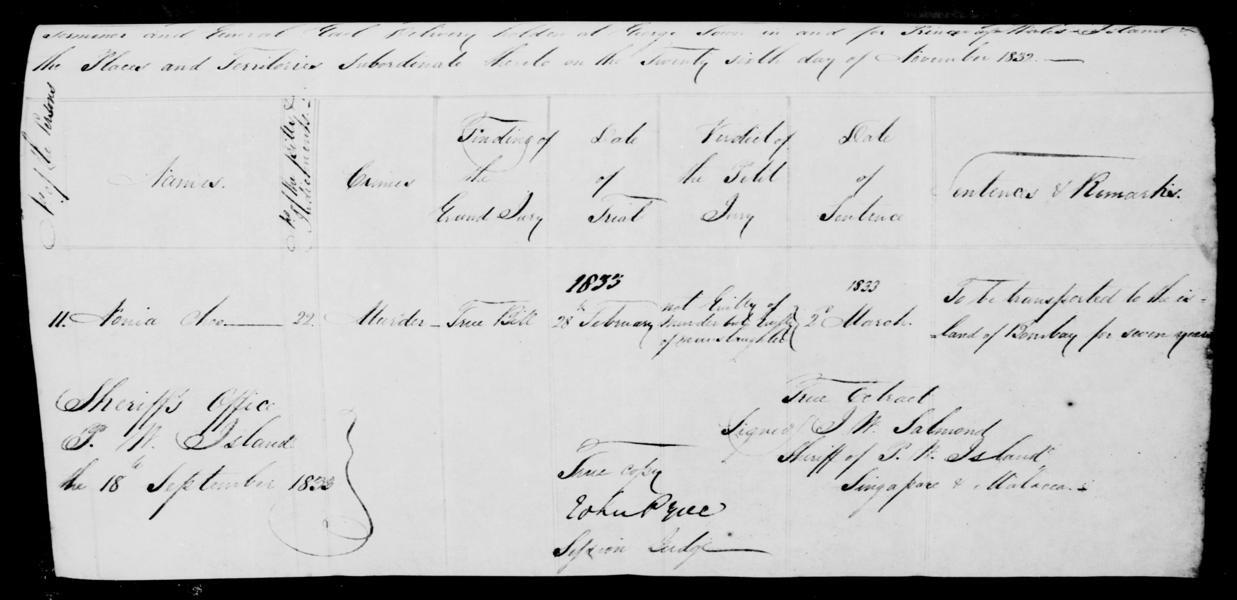 Terminer and General Gaol Delivery holden at George Town in and for Prince of Wales Island &
the Places and Territories Subordenate thereto on the Twenty sixth day of November 1832.
No. of the Persons
Names.
No. of the
Indictments
Crimes
Finding of
the
Grand Jury
Date
of
Trial
Verdict of
the Petit
Jury
Date
of
Sentence
Sentences & Remarks.
11. Nonia 22. Murder True Bill
1833
28th February
not Guilty of
Murder but Guilty
of manslaughter
1833
2d March.
To be transported to the is-
land of Bombay for seven years
Sheriff's Office
P. W. Island
the 18th September 1833
True Extract
Signed J W. Salmond
Sheriff of P. W. Island
Singapore & Malacca
True copy
John Pyne
Session Judge